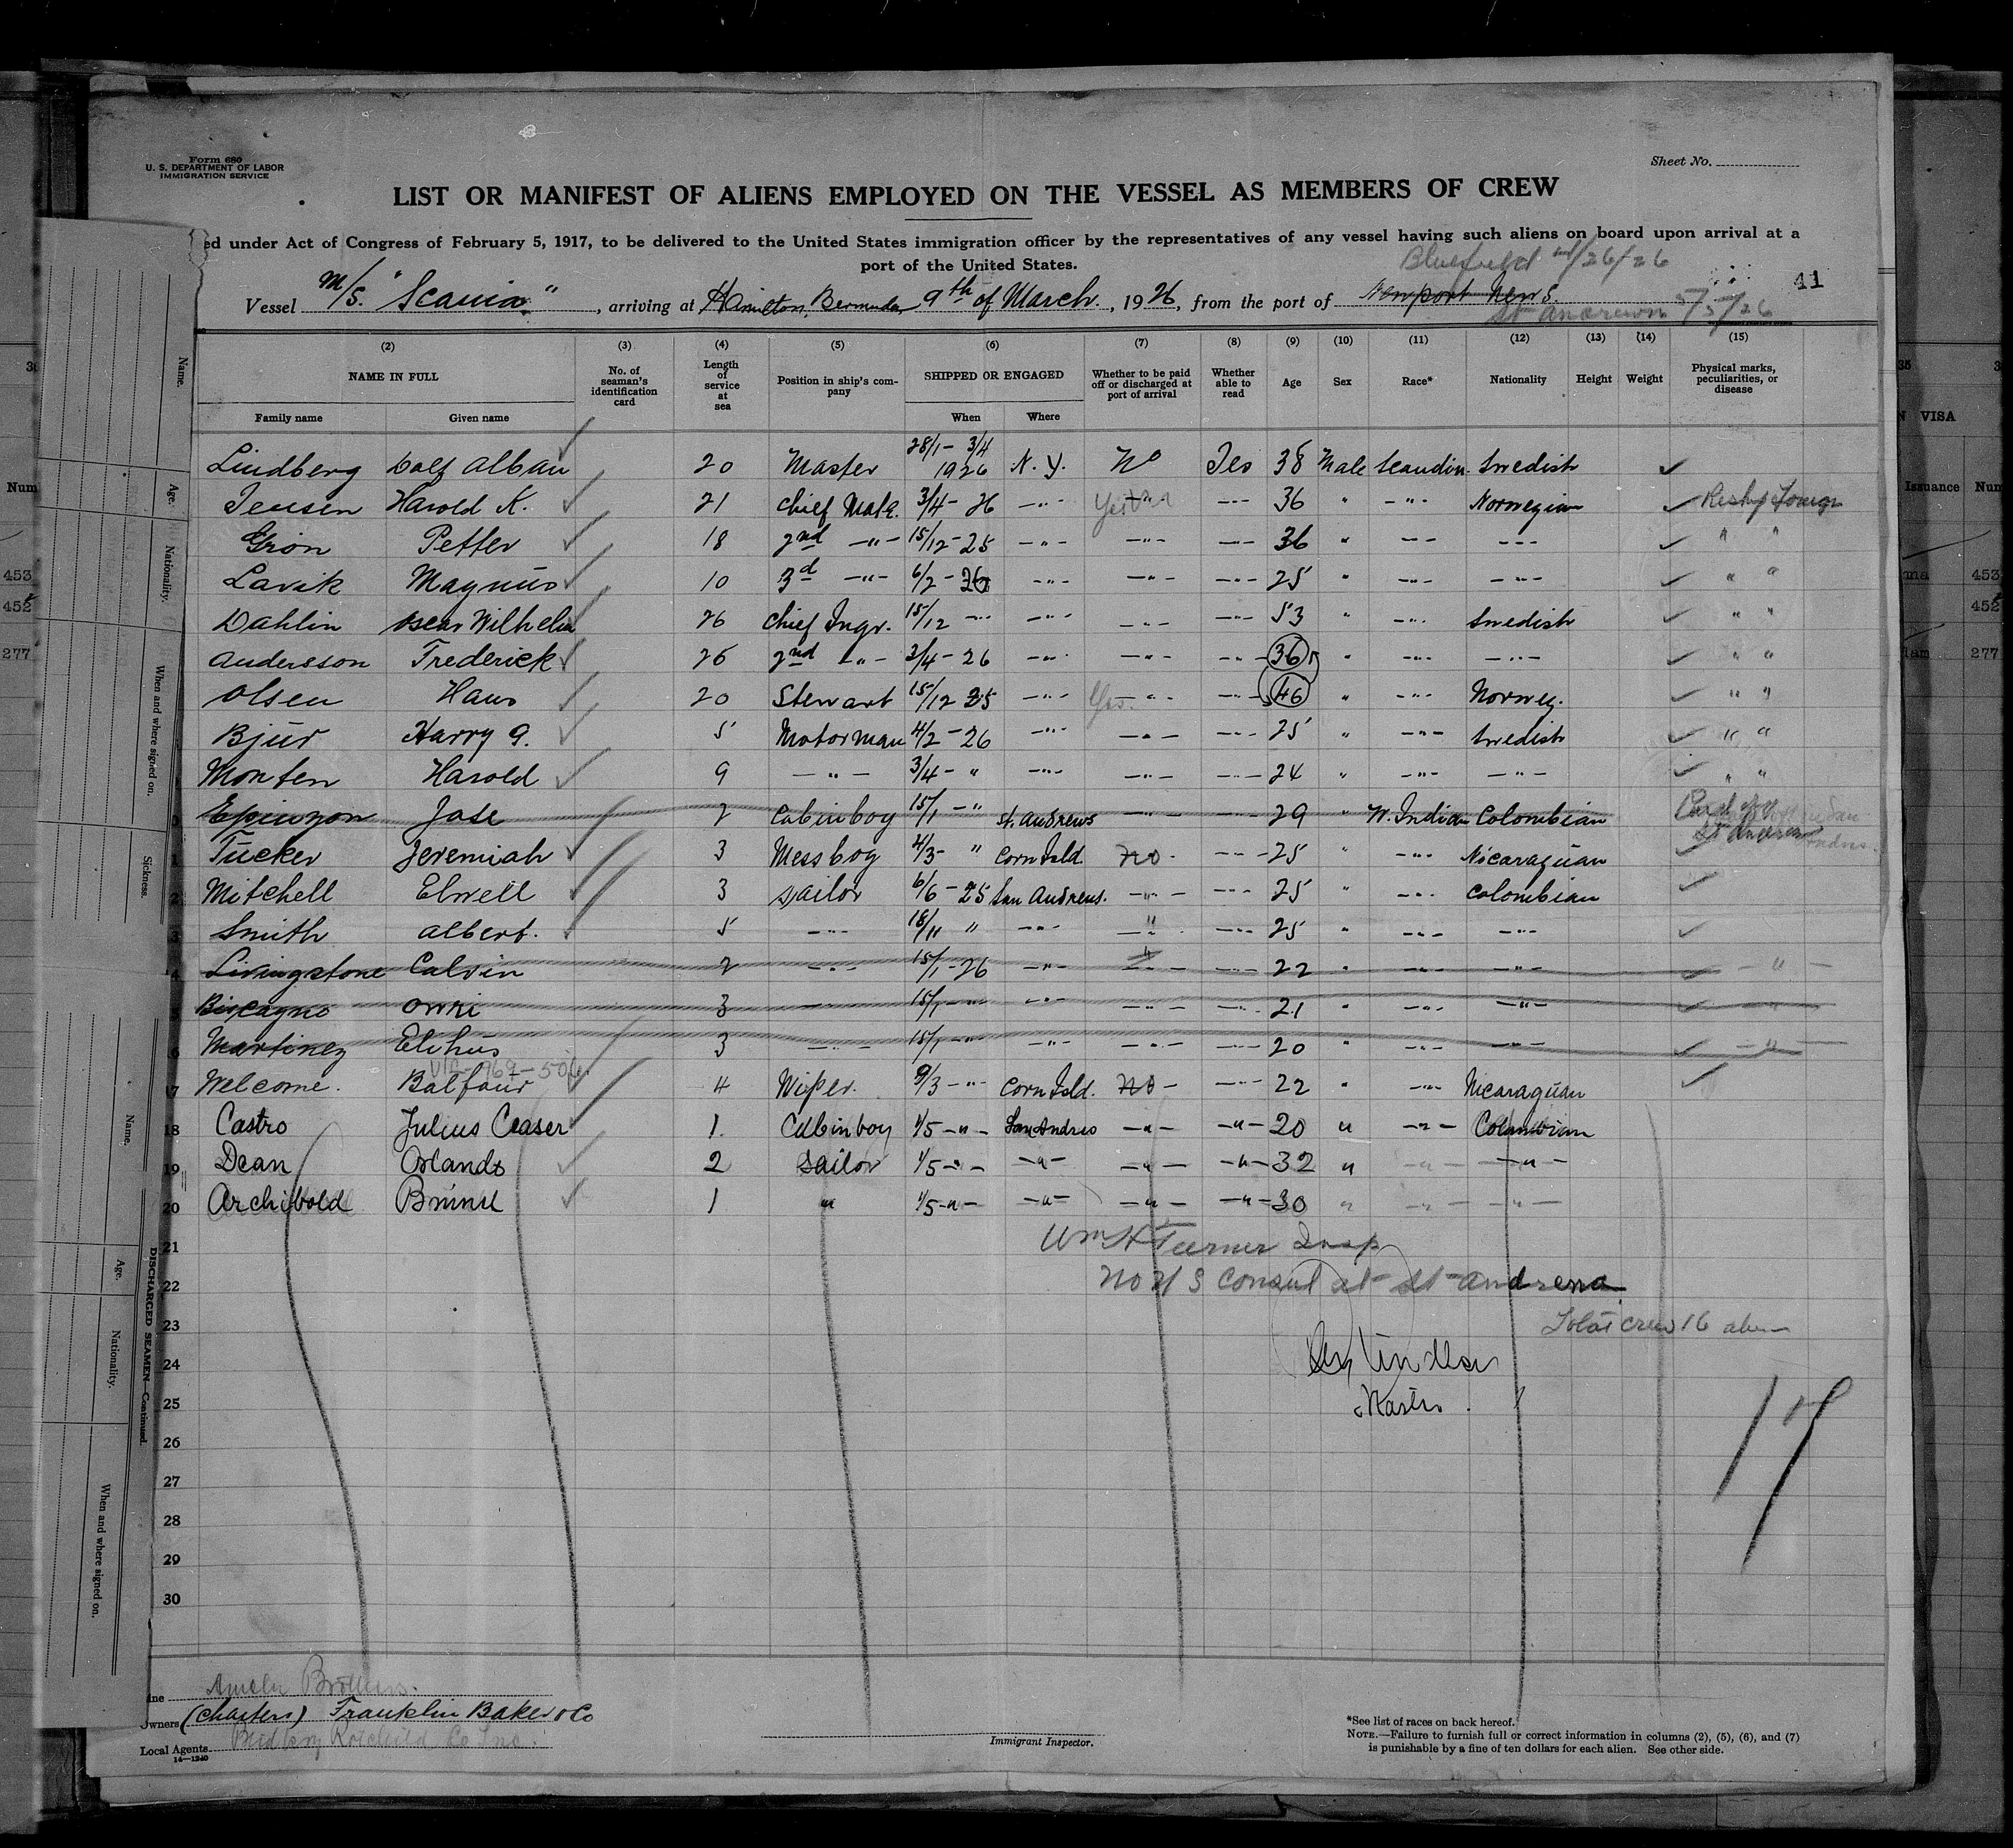 Form 680
U. S. DEPARTMENT OF LABOR
IMMIGRATION SERVICE
Sheet No.
LIST OR MANIFEST OF ALIENS EMPLOYED ON THE VESSEL AS MEMBERS OF CREW
ed under Act of Congress of February 5, 1917, to be delivered to the United States immigration officer by the representatives of any vessel having such aliens on board upon arrival at a
port of the United States.
Bluefield /26/26
41
Vessel M/S. "Scania." , arriving at Hamilton, Bermuda 9th of March. , 1926, from the port of Newport News.
St Andrews 5/5/26
(2) (3) (4) (5) (6) (7) (8) (9) (10) (11) (12) (13) (14) (15)
NAME IN FULL No. of seaman's identification card Length of service at sea Position in ship's company SHIPPED OR ENGAGED Whether to be paid off or discharged at port of arrival Whether able to read Age Sex Race* Nationality Height Weight Physical marks, peculiarities, or disease
Family name Given name When Where
Lindberg Alban 20 Master 28/1- 3/4 1926 N. Y. No Yes 38 Male Scandin. Swedish
Jensen Harold K. 21 Chief Mate. 3/4- 26 -"- Yes -"- 36 " -"- Norwegian
Grön Petter 18 2nd -"- 15/12-25 -"- -"- -"- 36 " -"- -"-
Lavik Magnus 10 3d -"- 6/2-26 -"- -"- -"- 25 " -"- -"-
Dahlin Oscar Wilhelm 26 Chief Ingr. 15/12 -"- -"- -"- -"- 53 " -"- Swedish
Andersson Frederick 26 2nd -"- 3/4-26 -"- -"- -"- 36 " -"- -"-
Olsen Hans 20 Stewart 15/12 25 -"- Yes. -"- -"- 46 " -"- Norweg.
Bjür Harry G. 5 Motorman 4/2-26 -"- -"- -"- 25 " -"- Swedish
Monten Harold 9 -"- 3/4-" -"- -"- -"- 24 " -"- -"-
Epinzon Jose 2 Cabinboy 15/1-" St. Andrews -"- -"- 29 " W. Indian Colombian
Tucker Jeremiah 3 Messboy 4/3- " Corn Isld. No. -"- 25 " -"- Nicaraguan
2 Mitchell Elwell 3 Sailor 6/6-25 San Andrews. -"- -"- 25 " -"- Colombian
3 Smith Albert. 5 -"- 18/11 " -"- -"- -"- 25 -"- -"-
4 Livingstone Calvin 2 -"- 15/1-26 -"- -"- -"- 22 " -"- -"-
5 3 15/1-"- -"- -"- -"- 21 " -"- -"-
6 Martinez Elihus 3 -"- 15/1-"- -"- -"- -"- 20 " -"- -"-
17 Welcome. Balfour 4 Wiper. 9/3-"- Corn Isld. No- -"- 22 " -"- Nicaraguan
18 Castro Julius Ceaser 1. Cabinboy 1/5-"- San Andres -"- -"- 20 " -"- Colombian
19 Dean Orlando 2 Sailor 1/5-"- -"- -"- -"- 32 " -"- -"-
20 Archibold 1 " 1/5-"- -"- -"- -"- 30 " -"- -"-
21 Wm H Turner Insp
22 No U S Consul at St Andrews
23 Total crew 16
24
25 Master.
26
27
28
29
30
17
ine Brothers.
Owners (Charters) Franklin Baker & Co
Local Agents
14—1240
Immigrant Inspector.
*See list of races on back hereof.
NOTE.—Failure to furnish full or correct information in columns (2), (5), (6), and (7)
is punishable by a fine of ten dollars for each alien. See other side.
Name.
Age.
Nationality.
When and where signed on.
Sickness.
Name.
Age.
Nationality.
When and where signed on.
DISCHARGED SEAMEN—Continued.
Num
453
452
277
VISA
Issuance
Num
453
452
277